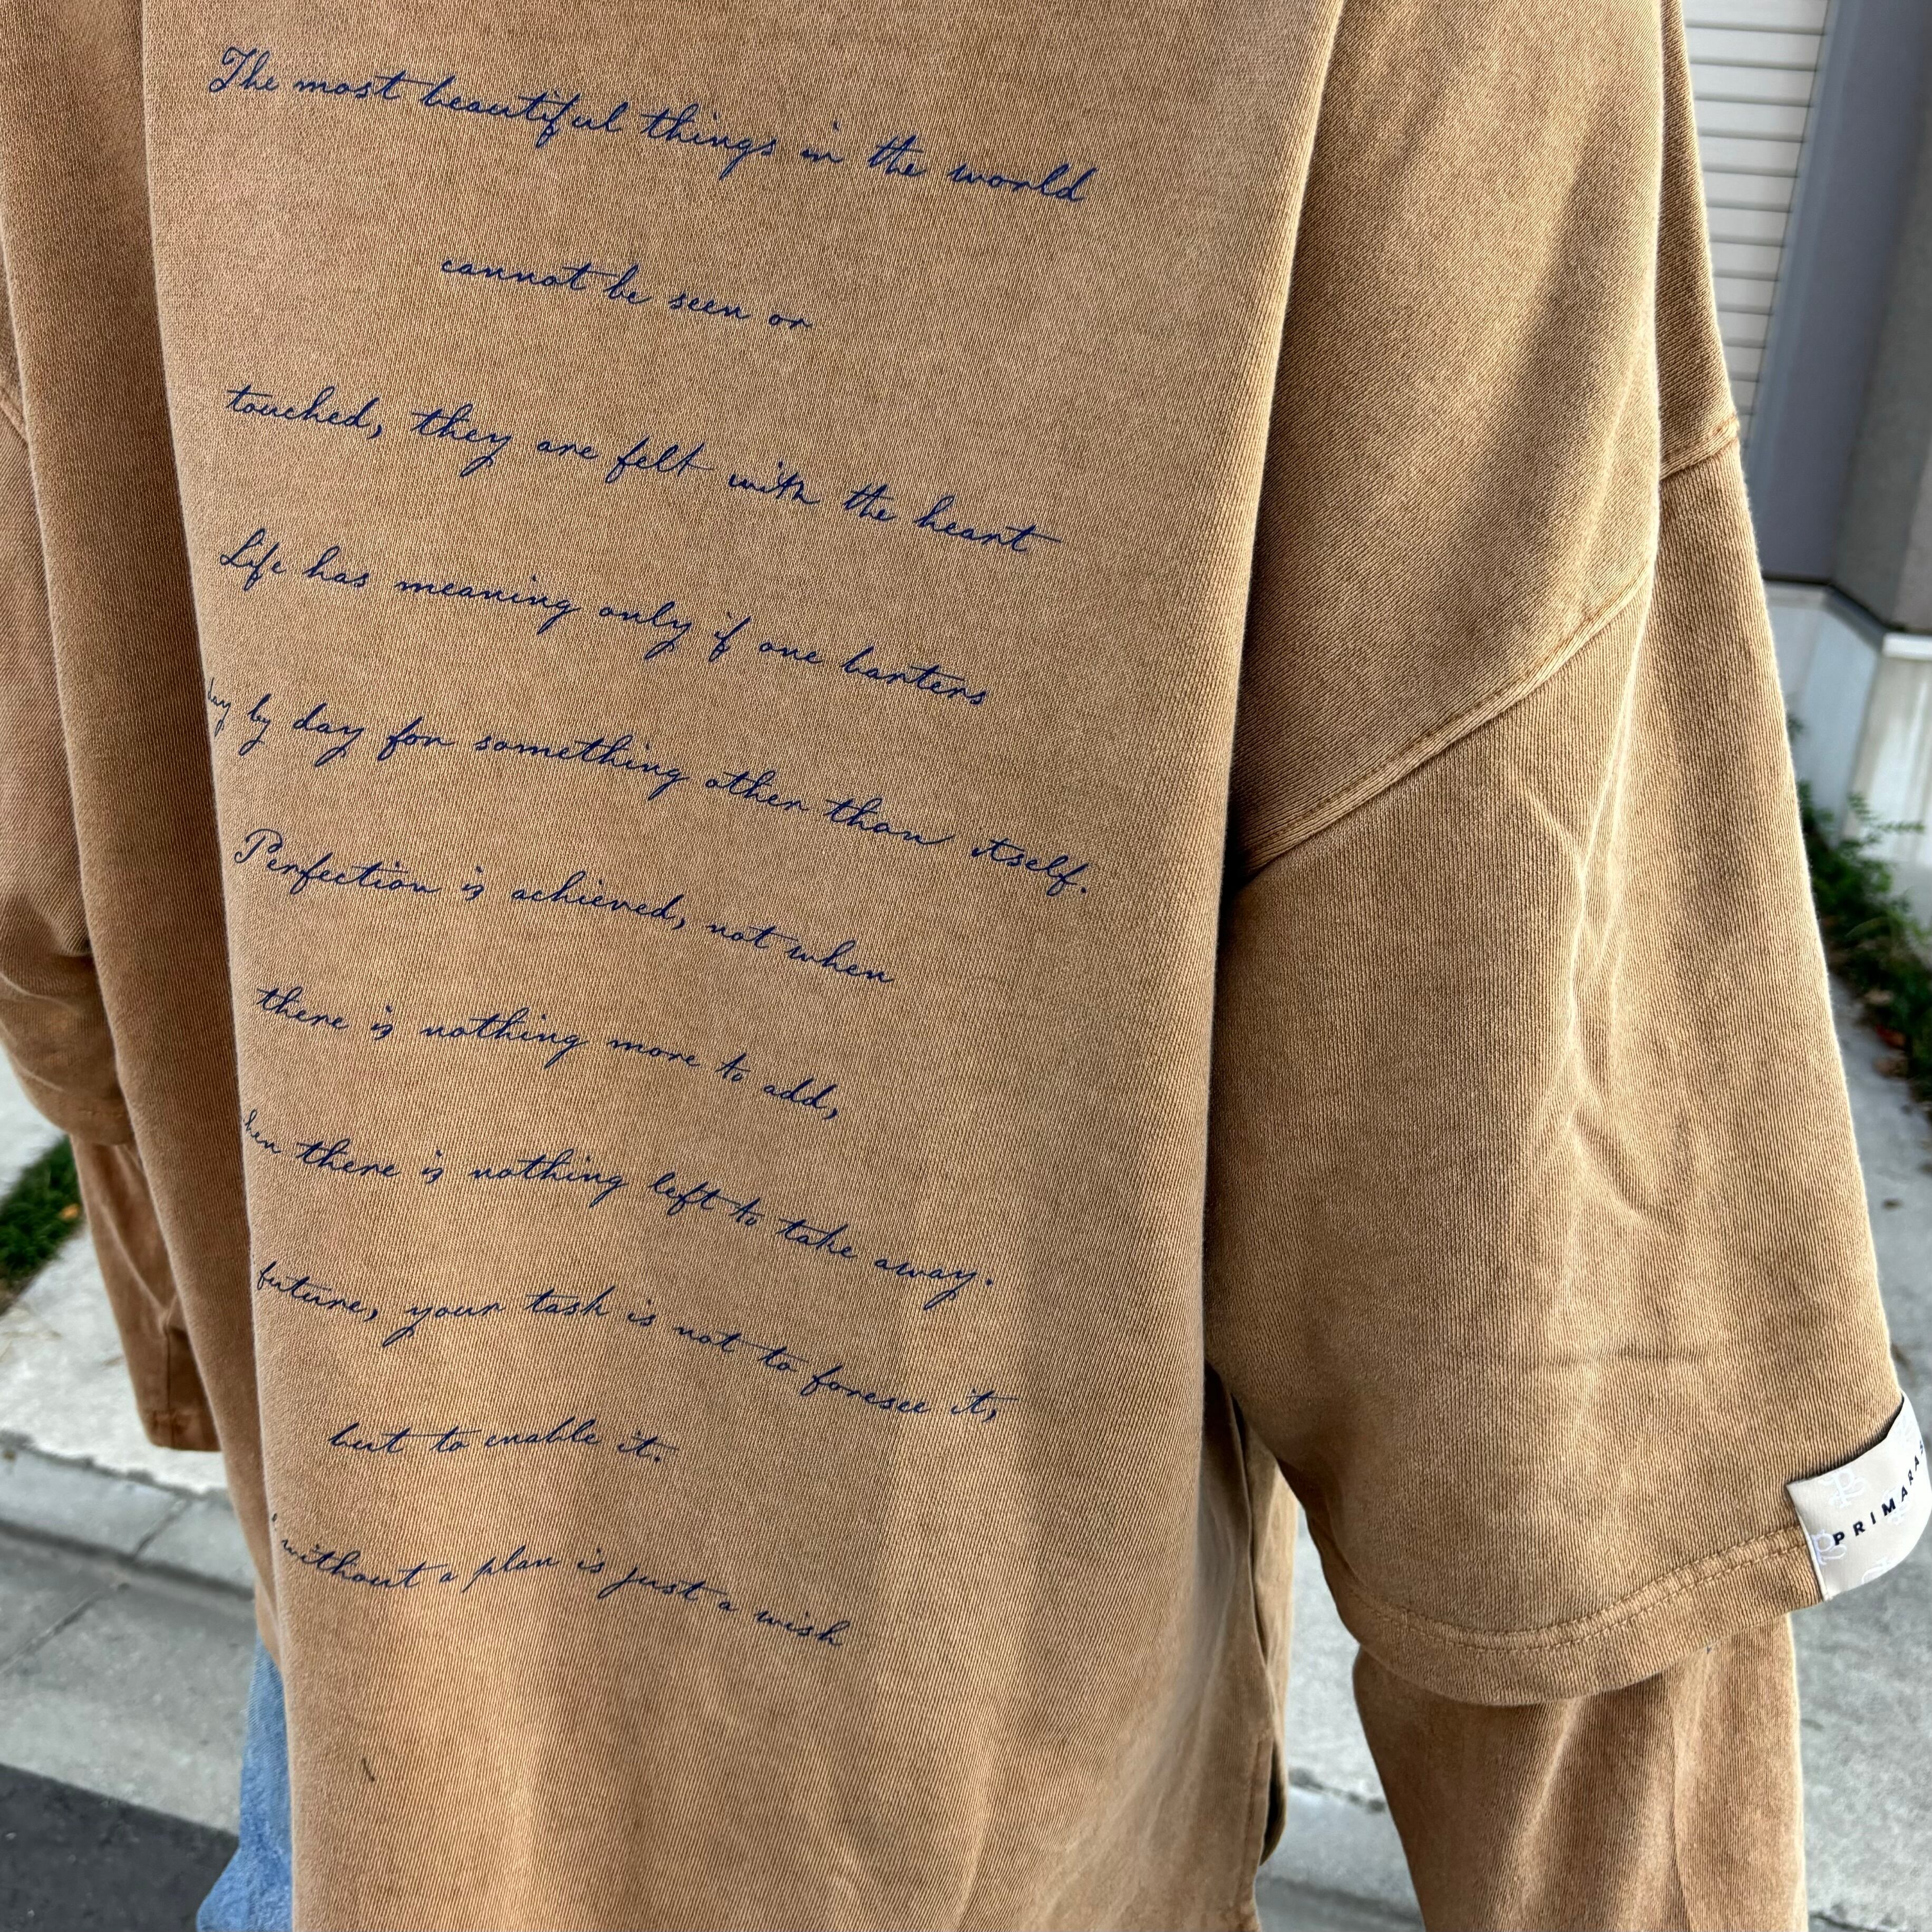 The most beautiful things in the world
cannot be seen or
touched, they are felt with the heart
Life has meaning only if one barters
by day for something other than itself.
Perfection is achieved, not when
there is nothing more to add,
there is nothing left to take away.
future, your task is not to foresee it,
but to enable it.
without a plan is just a wish